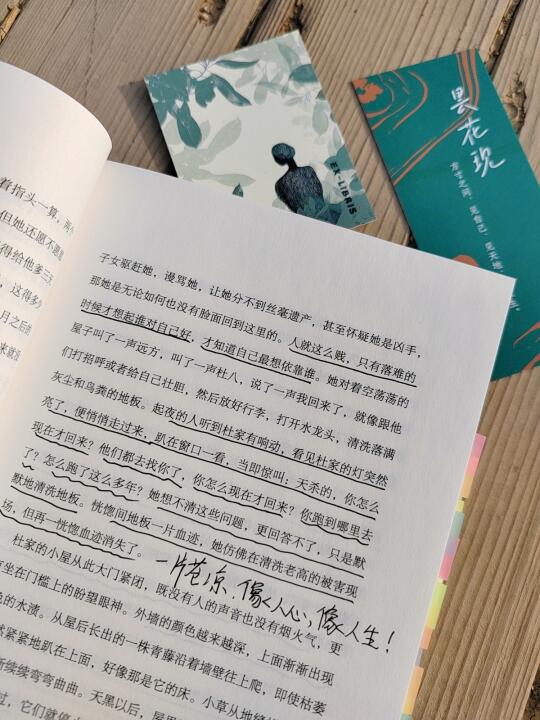 EX-LIBRIS
昙花现
方寸之间，见自己，见天地
着指头一算，两
但她还愿不愿意
得给他爹三
这得多
月之后
来就
子女驱赶她，谩骂她，让她分不到丝毫遗产，甚至怀疑她是凶手，
那她是无论如何也没有脸面回到这里的。人就这么贱，只有落难的
时候才想起谁对自己好，才知道自己最想依靠谁。她对着空荡荡的
屋子叫了一声远方，叫了一声杜八，说了一声我回来了，就像跟他
们打招呼或者给自己壮胆，然后放好行李，打开水龙头，清洗落满
灰尘和鸟粪的地板。起夜的人听到杜家有响动，看见杜家的灯突然
亮了，便悄悄走过来，趴在窗口一看，当即惊叫：天杀的，你怎么
现在才回来？他们都去找你了，你怎么现在才回来？你跑到哪里去
了？怎么跑了这么多年？她想不清这些问题，更回答不了，只是默
默地清洗地板。恍惚间地板一片血迹，她仿佛在清洗老高的被害现
场，但再一恍惚血迹消失了。
一片苍凉，像人心，像人生！
杜家的小屋从此大门紧闭，既没有人的声音也没有烟火气，更
坐在门槛上的盼望眼神。外墙的颜色越来越深，上面渐渐出现
色的水渍。从屋后长出的一株青藤沿着墙壁往上爬，即使枯萎
然紧紧地趴在上面，好像那是它的床。小草从地缝
续续弯弯曲曲。天黑以后，屋里
过，它们就